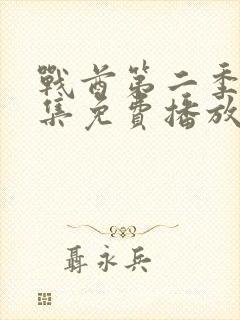 戰酋第二季
集免費播放
聶永兵